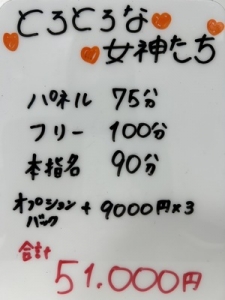 とろとろな
女神たち
パネル 75分
フリー 100分
本指名 90分
オプション
バック + 9000円×3
合計
51.000円